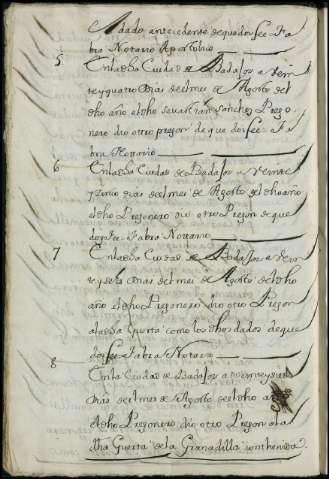 dado antecedente de que doi fee fa
bra Notario Apostolico
5 En la dha Ciudad de Badajos a vein
te y quatro dias del mes de Agosto del
dho año el dho Sevastian Sanchez Prego
nero dio otro pregon de que doi fee Fa
bra Notario
6 En la dha Ciudad de Badajos a veinte
y cinco dias del mes de Agosto del dho año
el dho Pregonero dio otro Pregon de que
doi fee Fabra Notario
7 En la dha Ciudad de Badajos a vein
te y seis dias del mes de Agosto del dho
año el dho Pregonero dio otro Pregon
a la dha Guerta como los dhos dados de que
doi fee Fabra Notario
8 En la Ciudad de Badajos a veinte y siete
dias del mes de Agosto del dho año
el dho Pregonero dio otro Pregon a la
dha Guerta de la Granadilla conthenida